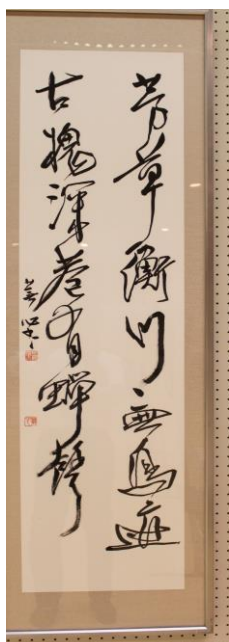 芳草衡門無馬迹
古槐深巷有蝉聲